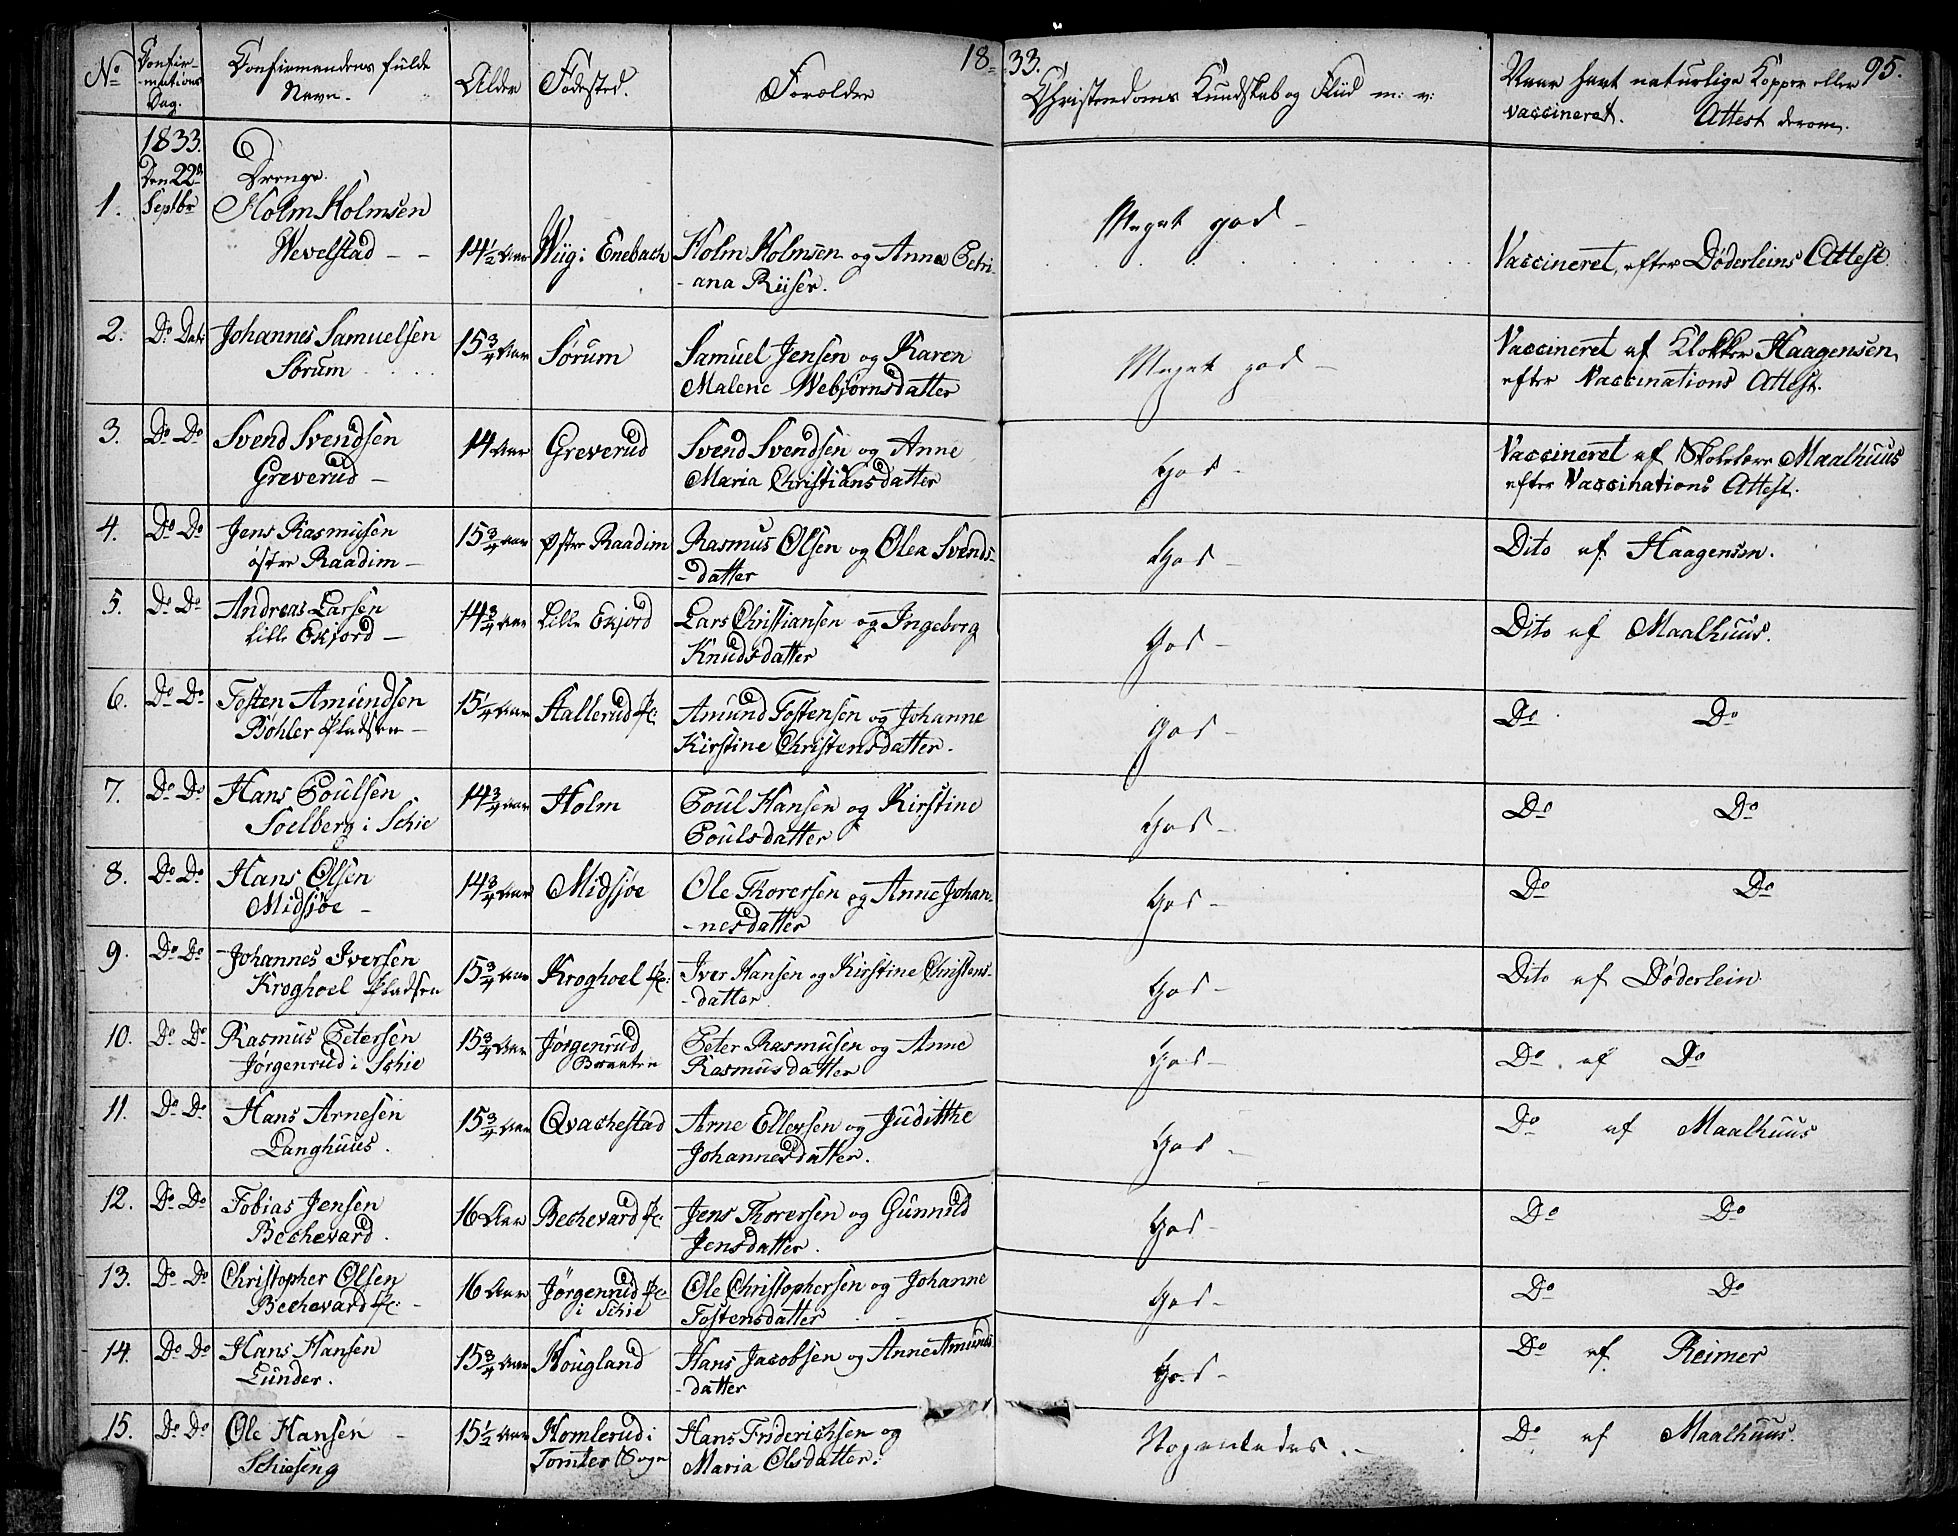 18 33. 95.
No Confir-
mations
Dag. Confirmandens fulde
Navn. Alder Fødested. Forældre Christendoms Kundskab og Fliid m: v: Naar havt naturlige Kopper eller
vaccineret. Attest derom.
1833.
Den 22d
Septbr Drenge.
1. Holm Holmsen
Wevelstad - - 14½ Aar Wiig i Enebach Holm Holmsen og Anne Petri-
-ana Riiser. Meget god - Vaccineret, efter Døderleins Attest.
2. Do Dato Johannes Samuelsen
Sørum 15¾ Aar Sørum Samuel Jensen og Karen
Malene Webjørnsdatter Meget god - Vaccineret af Klokker Haagensen,
efter Vaccinations Attest.
3. Do Do Svend Svendsen
Greverud - 14 Aar Greverud Svend Svendsen og Anne
Maria Christiansdatter God - Vaccineret af Skolelærer Maalhuus
efter Vaccinations Attest.
4. Do Do Jens Rasmusen
østre Raadim - 15¾ Aar Østre Raadim Rasmus Olsen og Olea Svends-
-datter God - Dito af Haagensen.
5. Do Do Andreas Larsen
Lille Ekjord - 14¾ Aar Lille Ekjord Lars Christiansen og Ingeborg
Knudsdatter God - Dito af Maalhuus.
6. Do Do Tosten Amundsen
Bøhler Pladsen - 15¼ Aar Stallerud Pl: Amund Tostensen og Johanne
Kirstine Christensdatter. God - Do Do
7. Do Do Hans Poulsen
Soelberg i Schie 14¾ Aar Holm Poul Hansen og Kirstine
Poulsdatter God - Do Do
8. Do Do Hans Olsen
Midsjøe - 14¾ Aar Midsjøe Ole Thorersen og Anne Johan-
-nesdatter God - Do Do
9. Do Do Johannes Iversen
Kroghoel Pladsen 15¾ Aar Kroghoel Pl: Iver Hansen og Kirstine Christens-
-datter. God - Dito af Døderlein
10. Do Do Rasmus Petersen
Jørgenrud i Schie 15¾ Aar Jørgenrud
Braaten Peter Rasmusen og Anne
Rasmusdatter God - Do af Do
11. Do Do Hans Arnesen
Langhuus. 15¾ Aar Qvachestad Arne Ellevsen og Judithe
Johannesdatter. God - Do af Maalhuus
12. Do Do Tobias Jensen
Bechevard. 16 Aar Bechevard Pl: Jens Thorersen og Gunnild
Jensdatter. God - Do Do
13. Do Do Christopher Olsen
Bechevard Pl: - 16 Aar Jørgenrud Pl:
i Schie Ole Christophersen og Johanne
Tostensdatter God - Do Do
14. Do Do Hans Hansen
Lunder. 15¾ Aar Hougland Hans Jacobsen og Anne Amunds-
-datter God - Do af Reimer
15. Do Do Ole Hansen -
Schieseng 15½ Aar Homlerud i
Tomter Sogn Hans Friderichsen og
Maria Olsdatter. Nogenledes. - Do af Maalhuus.